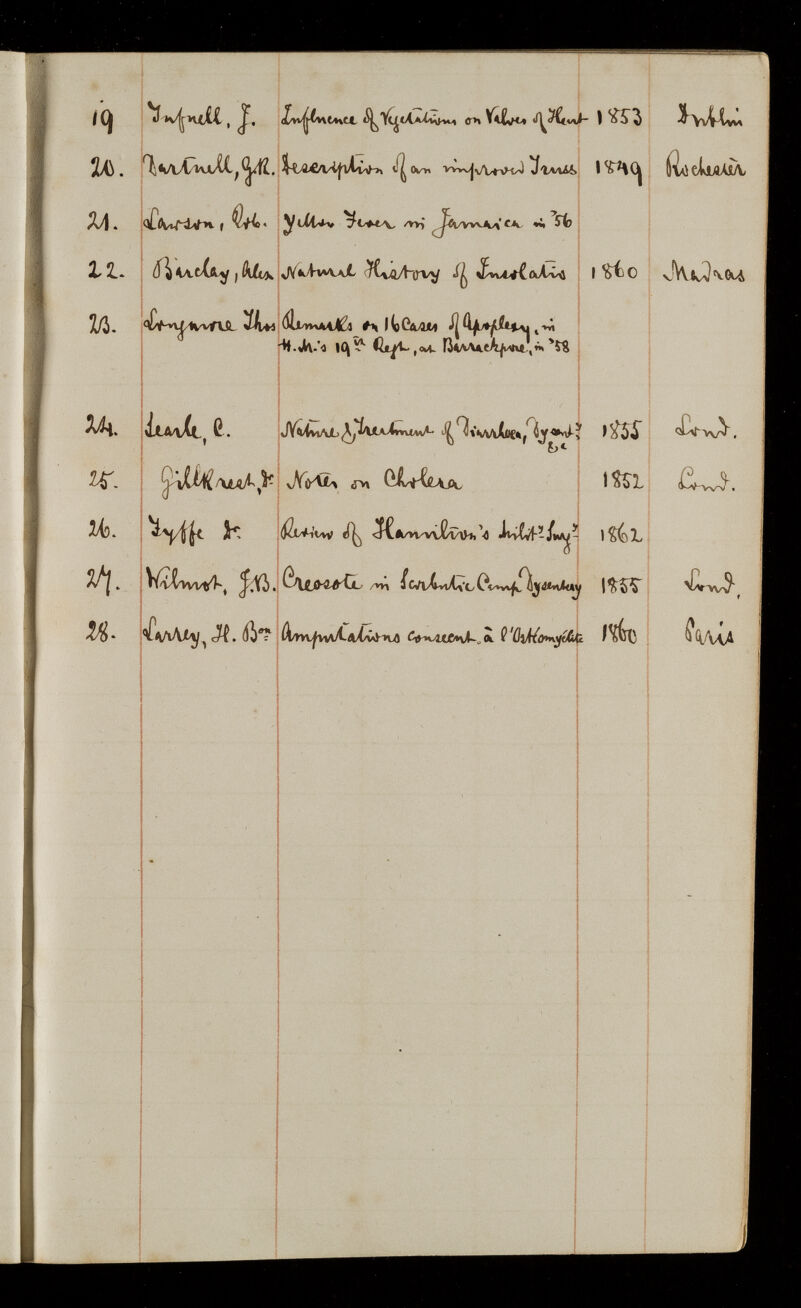 19 Tufnell, J. Influence of Vegetations on Valves of Heart 1853 Dublin
20. Dartnell, G.R. Description of an improved Truss 1849 Rochester
21. Lawson, Rob. Yellow Fever in Jamaica in '56
22. Barclay, Alex Natural History of Insolatio 1860 Madras
23. Longmore Thos Remarks on 16 Cases of Apoplexy, in
H.M.'s 19th Regt, at Barrackpore, in '58
24. Searle, C. Nature & Treatment of Diarrhoea, Dysenty 1855 Lond.
&c
25. Gillkrest, Dr Notes on Cholera 1852 Lond.
26. Fyffe Dr. Review of Hamilton's Mility Surgy 1862
27. Wilmot, J.B. Creosote in Scorbutic Camp Dysentery 1855 Lond,
28. Larrey, H. Bon Amputations consecut. à l'Ostéomyélite 1860 Paris